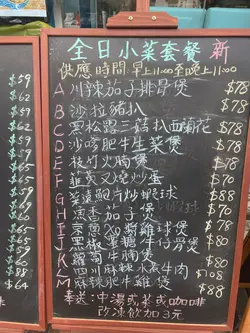 全日小菜套餐 新
供應時間:早上11:00至晚上11:00
A 川辣茄子排骨煲 $78
B 沙拉豬扒 $
C 黑松露三菇扒西蘭花 $78
D 沙嗲肥牛生菜煲 $
E 枝竹火腩煲 $
F 韮黃叉燒炒蛋 $70
G 菜遠鮑片炒蝦球 $88
H 魚香茄子煲 $70
I 京蔥XO醬雞球煲 $78
J 黑椒薯糖牛仔骨煲 $88
K 蘿蔔牛腩煲 $
L 四川麻辣水煮牛肉 $108
M 麻辣肥牛雞煲 $88
奉送:中湯或茶或咖啡
改凍飲加3元
$59
$62
$59
$59
$62
$59
$62
$60
$62
$68
$88
$64